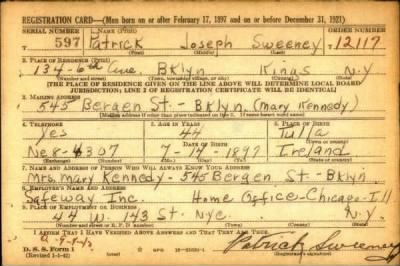 REGISTRATION CARD—(Men born on or after February 17, 1897 and on or before December 31, 1921)
SERIAL NUMBER 1. NAME (Print) ORDER NUMBER
597 Patrick Joseph Sweeney 12117
(First) (Middle) (Last)
2. PLACE OF RESIDENCE (Print)
134-6th Ave Bklyn Kings N.Y
(Number and street) (Town, township, village, or city) (County) (State)
[THE PLACE OF RESIDENCE GIVEN ON THE LINE ABOVE WILL DETERMINE LOCAL BOARD
JURISDICTION; LINE 2 OF REGISTRATION CERTIFICATE WILL BE IDENTICAL]
3. MAILING ADDRESS
545 Bergen St.- Bklyn. (Mary Kennedy)
[Mailing address if other than place indicated on line 2. If same insert word same]
4. TELEPHONE 5. AGE IN YEARS 6. PLACE OF BIRTH
Yes 44 Tulla
DATE OF BIRTH (Town or county)
Ne.8-4307 7-14-1897 Ireland
(Exchange) (Number) (Mo.) (Day) (Yr.) (State or country)
7. NAME AND ADDRESS OF PERSON WHO WILL ALWAYS KNOW YOUR ADDRESS
Mrs. Mary Kennedy - 545 Bergen St- Bklyn.
8. EMPLOYER'S NAME AND ADDRESS
Safeway Inc. Home Office-Chicago-Ill
9. PLACE OF EMPLOYMENT OR BUSINESS
44 W. 143 St. Nyc. N.Y.
(Number and street or R. F. D. number) (Town) (County) (State)
I AFFIRM THAT I HAVE VERIFIED ABOVE ANSWERS AND THAT THEY ARE TRUE.
D. S. S. Form 1
(Revised 1-1-42) Patrick Sweeney